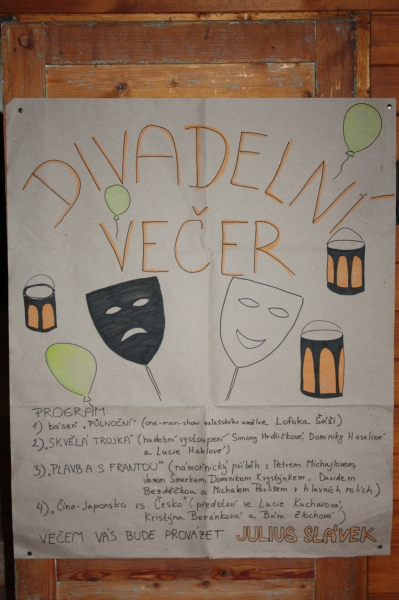 DIVADELNÍ
VEČER
PROGRAM
1) báseň „PŮLNOČNÍ" (one-man-show valašského umělce Lofoka Šáši)
2) „SKVĚLÁ TROJKA" (hudební vystoupení Simony Hrdličkové, Dominiky Hasalové
a Lucie Haklové)
3) „PLAVBA S FRANTOU" (námořnický příběh s Petrem Michajlovem,
Janem Smerkem, Dominikem Krystýnkem, Davidem
Bezděčkou a Michalem Pavlasem v hlavních rolích)
4) „Čína-Japonsko vs. Česko" (představí se Lucie Kuchařová,
Kristýna Beránková a Bára Zlochová)
VEČEREM VÁS BUDE PROVÁZET JULIUS SLÁVEK